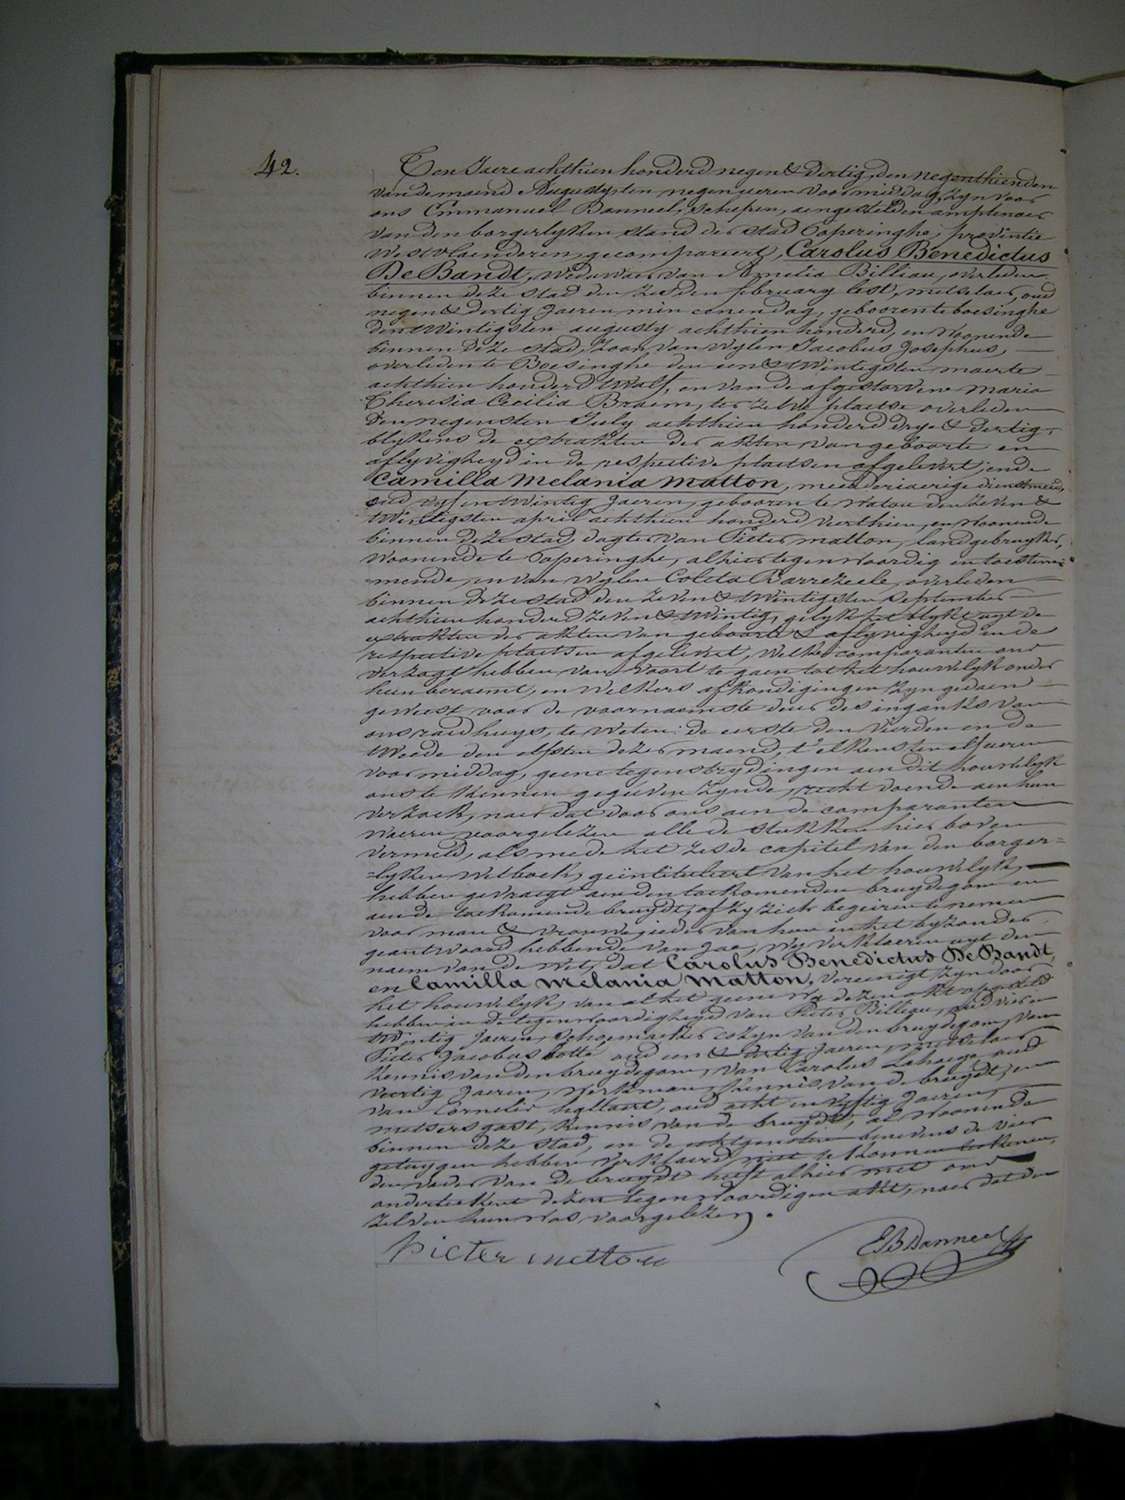 42.
Ten Jaere achthien honderd negen & dertig, den negenthienden
van de maend Augusty, ten negen ueren voormiddag, zyn voor
ons Emmanuel Banneel, schepen, aengestelden amptenaer
van den borgerlyken stand der stad Poperinghe, provintie
Westvlaenderen, gecompareert, Carolus Benedictus
De Bandt, weduwaer van Amelia Billiau, overleden
binnen deze stad den zesden february lest, metselaer, oud
negen & dertig Jaeren min eenen dag, geboren te boesinghe
den twintigsten augusty achthien honderd, en woonende
binnen deze stad, zoon van wylen Jacobus Josephus,
overleden te Boesinghe den een & twintigsten maerte
achthien honderd twalf, en van de afgestorvene Maria
Theresia Cecilia Braem, ter zelve plaetse overleden
den negensten July achthien honderd drye & dertig,
blykens de extrakten der akten van geboorte en
aflyvigheyd in de respective plaetsen afgelevert; ende
Camilla Melania Matton, meerderjaerige dienstmeid,
oud vyf en twintig Jaeren, geboren te Watou den zeven &
twintigsten april achthien honderd vierthien, en woonende
binnen deze stad, dogter van Pieter Matton, landgebruyker,
woonende te Poperinghe, alhier tegenwoordig en toestem-
mende, en van wylen Coleta Barrezeele, overleden
binnen deze stad den zeven & twintigsten september
achthien honderd zeven & twintig, gelyk het blykt uyt de
extrakten der akten van geboorte & aflyvigheyd in de
respective plaetsen afgelevert, welke comparanten ons
verzogt hebben van voort te gaen tot het houwelyk onder
hun beraemt, en welkers afkondigingen zyn gedaen
geweest voor de voornaemste deur des ingangs van
ons raedhuys, te weten: de eerste den vierden en de
tweede den elfsten dezer maend, t'elkens ten elf ueren
voormiddag, geene tegenstrydingen aen dit houwelyk
ons te kennen gegeven zynde, recht doende aen hun
verzoek, naer dat door ons aen de comparanten
waeren voorgelezen alle de stukken hier boven
vermeld, als mede het zesde capitel van den borger-
lyken wetboek, geïntituleert van het houwelyk,
hebben gevraegt aen den toekomenden bruydegom en
aen de toekomende bruydt, of zy zich begeiren te nemen
voor man & vrouw, ieder van hun in het byzonder
geantwoord hebbende van Jae, wy verklaeren uyt den
naem van de wet, dat Carolus Benedictus De Bandt,
en Camilla Melania Matton, vereenigt zyn door
het houwelyk, van al het geene wy dezen akt opgesteld
hebben in de tegenwoordigheyd van Pieter Billiau, oud vier en
twintig Jaeren, schoenmaker, cozyn van den bruydegom, van
Pieter Jacobus Botte oud een & dertig Jaeren, metselaer
kennis van den bruydegom, van Carolus Lahaege, oud
veertig Jaeren, werkman, kennis van de bruydt, en
van Cornelis hallaert, oud acht en vyftig Jaeren,
metsersgast, kennis van de bruydt, al woonende
binnen deze stad, en de echtgenoten benevens de vier
getuygen hebben verklaerd niet te konnen teekenen,
den vader van de bruydt heeft alhier met ons
onderteekent dezen tegenwoordigen akt, naer dat den
zelven hun was voorgelezen.
Pieter Matton
E B Banneel